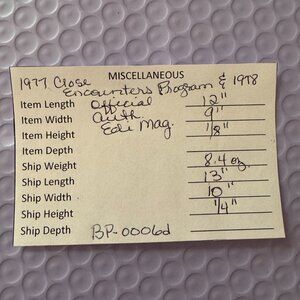 MISCELLANEOUS
1977 Close
Encounters Program & 1978
Item Length Official 12"
Item Width Auth 9"
Item Height Edi Mag. 1/8"
Item Depth
Ship Weight 8.4 oz
Ship Length 13"
Ship Width 10"
Ship Height 1/4"
Ship Depth BP-0006d